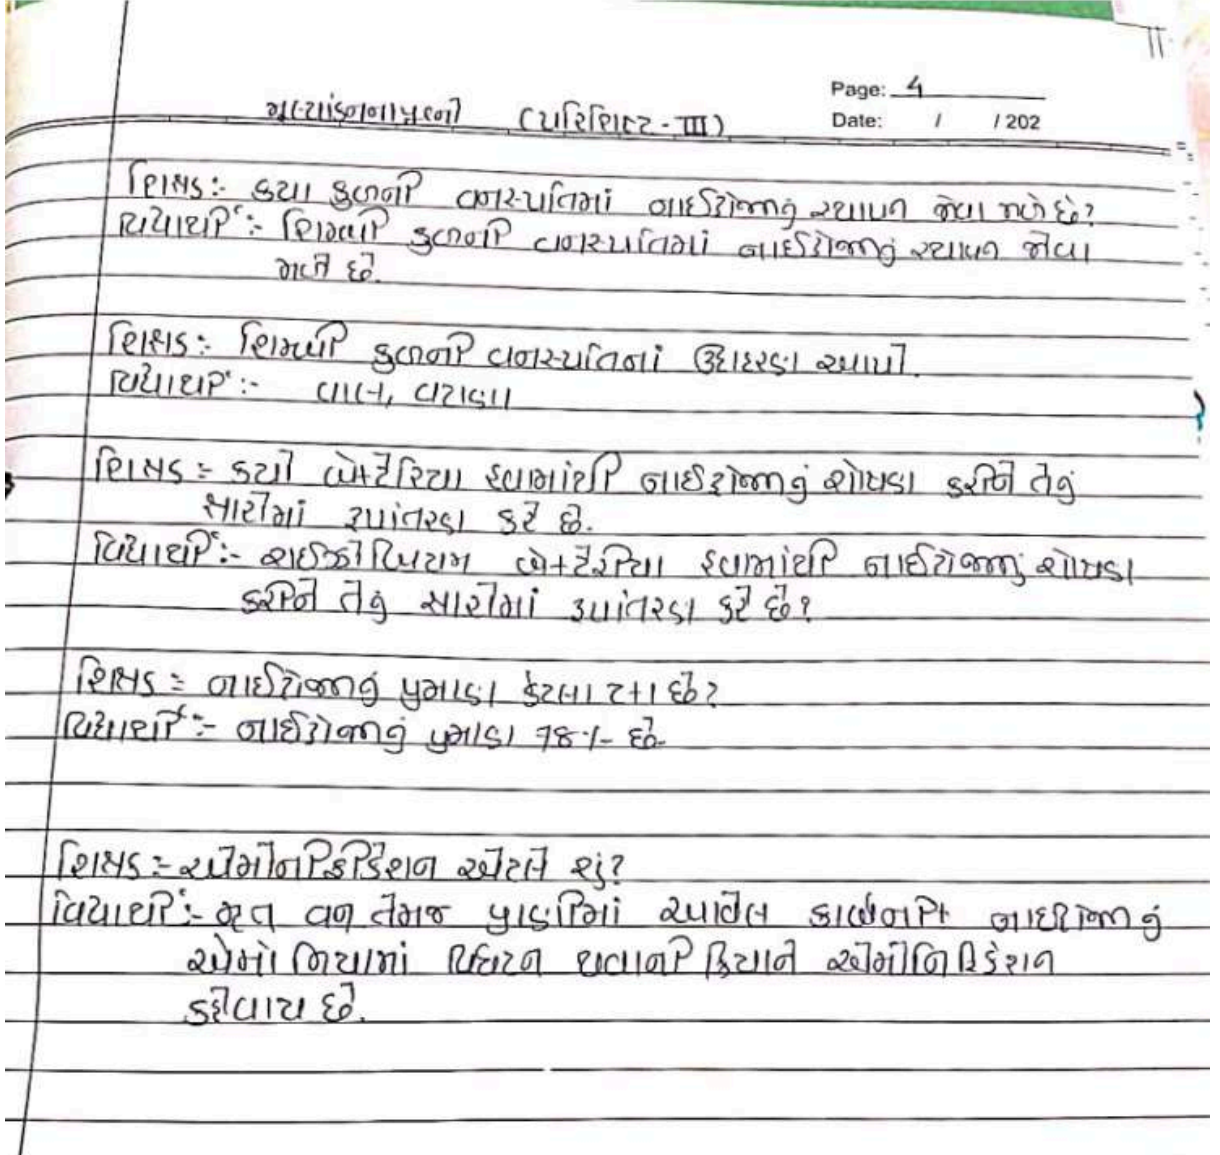 Page: 4
મૂલ્યાંકનના પ્રશ્નો (પરિશિષ્ટ - III)
Date: / / 202
શિક્ષક :- કયા કુળની વનસ્પતિમાં નાઈટ્રોજનનું સ્થાપન જોવા મળે છે?
વિદ્યાર્થી :- શિમ્બી કુળની વનસ્પતિમાં નાઈટ્રોજનનું સ્થાપન જોવા
મળે છે.
શિક્ષક :- શિમ્બી કુળની વનસ્પતિનાં ઉદાહરણ આપો.
વિદ્યાર્થી :- વાલ, વટાણા
શિક્ષક :- કયો બેક્ટેરિયા હવામાંથી નાઈટ્રોજનનું શોષણ કરીને તેનું
ક્ષારોમાં રૂપાંતરણ કરે છે.
વિદ્યાર્થી :- રાઈઝોબિયમ બેક્ટેરિયા હવામાંથી નાઈટ્રોજનનું શોષણ
કરીને તેનું ક્ષારોમાં રૂપાંતરણ કરે છે?
શિક્ષક :- નાઈટ્રોજનનું પ્રમાણ કેટલા ટકા છે?
વિદ્યાર્થી :- નાઈટ્રોજનનું પ્રમાણ ૭૮% છે.
શિક્ષક :- એમોનીફિકેશન એટલે શું?
વિદ્યાર્થી :- મૃત વન તેમજ પ્રાણીમાં આવેલ કાર્બનિક નાઈટ્રોજનનું
એમોનિયામાં વિઘટન થવાની ક્રિયાને એમોનિફિકેશન
કહેવાય છે.